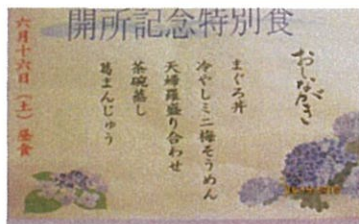 開所記念特別食
おしながき
まぐろ丼
冷やしミニ梅そうめん
天婦羅盛り合わせ
茶碗蒸し
葛まんじゅう
六月十六日(土)昼食